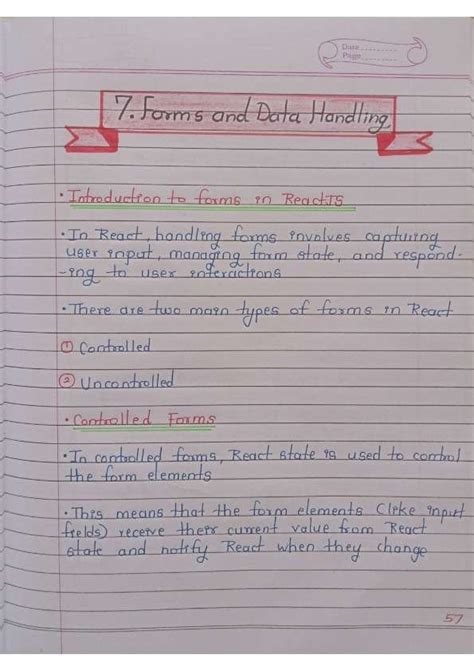 Date
Page
7. Forms and Data Handling
• Introduction to forms in ReactJS
• In React, handling forms involves capturing
user input, managing form state, and respond-
-ing to user interactions
• There are two main types of forms in React
① Controlled
② Uncontrolled
• Controlled Forms
• In controlled forms, React state is used to control
the form elements
• This means that the form elements (like input
fields) receive their current value from React
state and notify React when they change
57